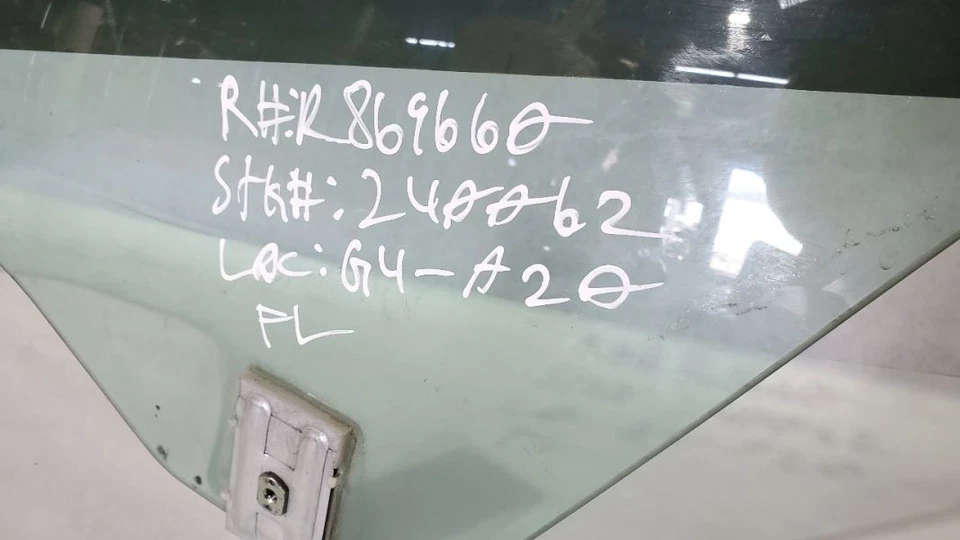 R#:R869660
Stk#: 24AA62
Loc: G4-A20
FL